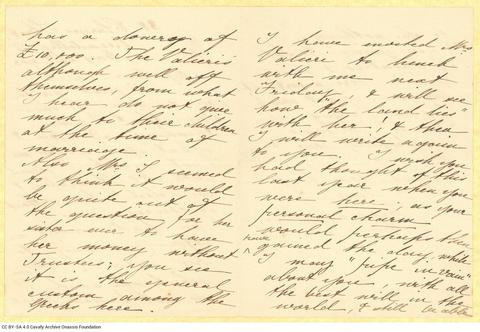 has a dowery of
£10,000. The Valieris
although well off
themselves, from what
I hear do not give
much to their children
at the time of
marriage.
Also Mrs. I seemed
to think it would
be quite out of
the question for her
sister ever to have
her money without
Trustees; you see
it is the general
custom among the
Greeks here.
I have invited Mrs
Valieri to lunch
with me next
Friday, & will see
how "the land lies"
with her! & then
I will write again
to you. I wish you
had thought of this
last year when you
were here; as your
personal charm
would perhaps then
have
gained the day, while
I may "pipe in vain"
about you, with all
the best will in the
world, & still
CC BY-SA 4.0 Cavafy Archive Onassis Foundation